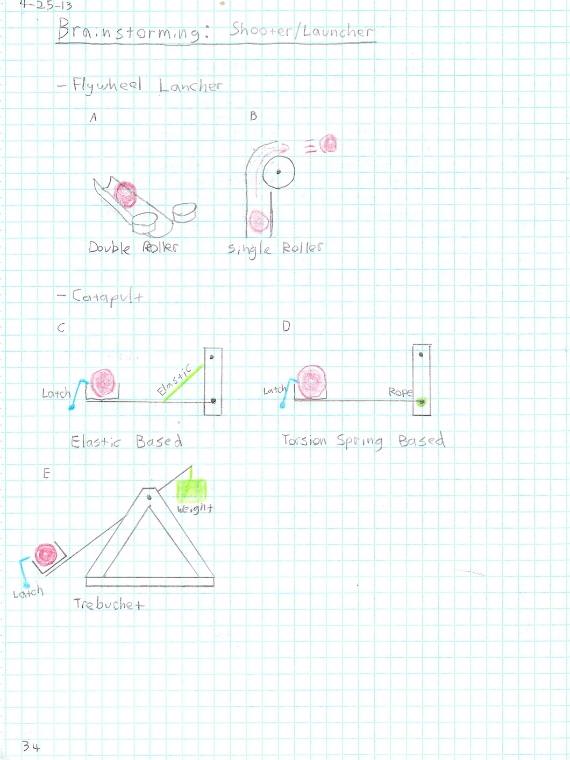 4-25-13
Brainstorming: Shooter/Launcher
- Flywheel Lancher
A B
Double Roller Single Roller
- Catapult
C D
Elastic
Latch Latch Rope
Elastic Based Torsion Spring Based
E
Weight
Latch
Trebuchet
34